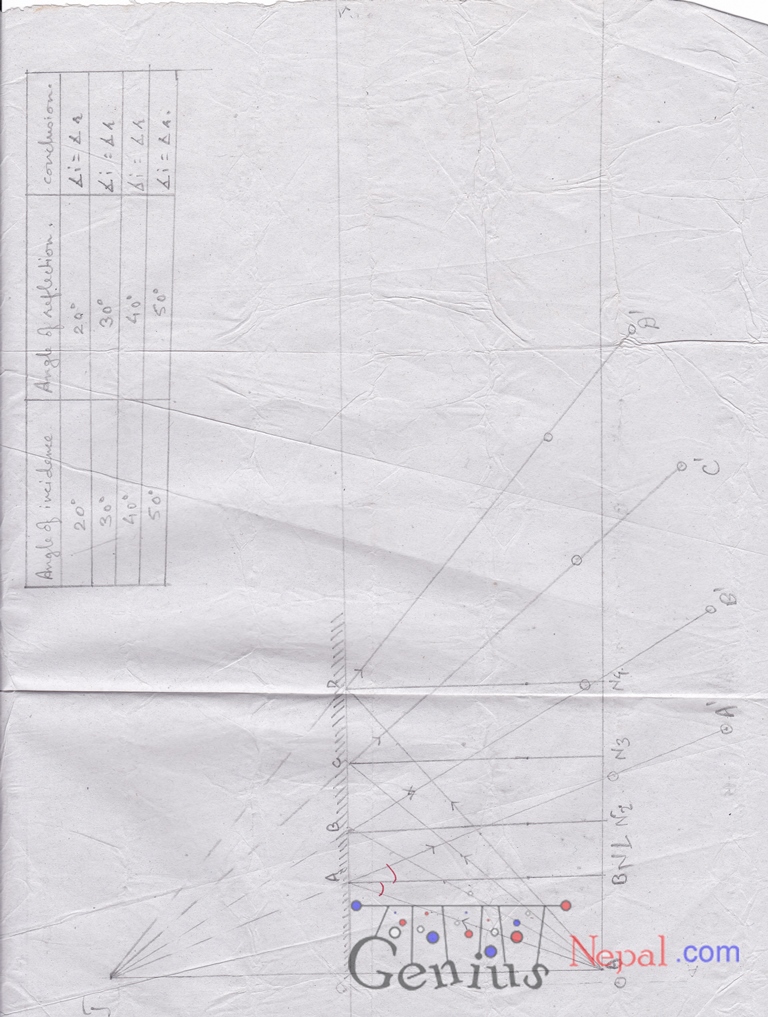 Angle of incidence Angle of reflection. conclusion.
20° 20° ∠i = ∠r
30° 30° ∠i = ∠r
40° 40° ∠i = ∠r
50° 50° ∠i = ∠r.
A B C
N2 N3 N4
A' B' C' D'
Genius Nepal.com